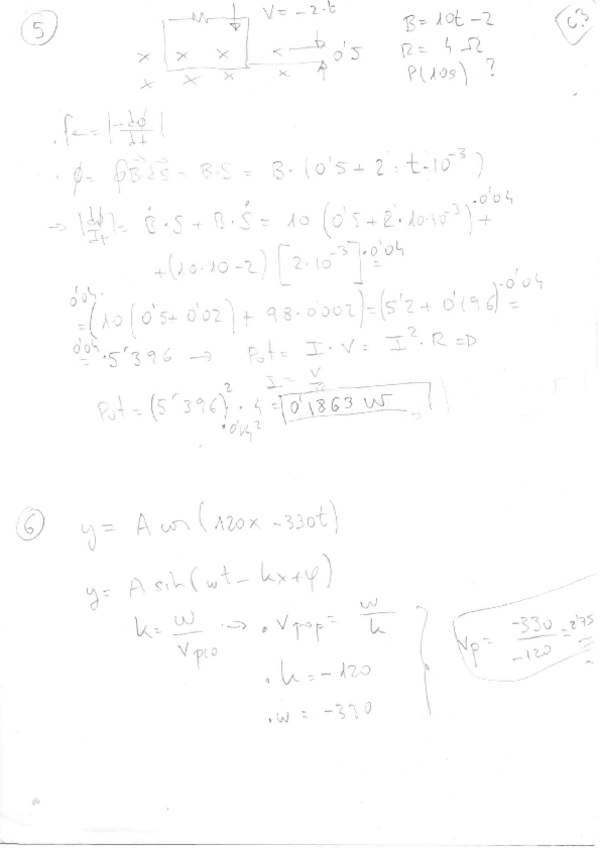 5
V = -2·t
B = 10t - 2
R = 4 Ω
P(10s) ?
C.3
x x x x
x x x
0'5
· fe = |-dϕ/dt|
· ϕ = ∮B⃗dS⃗ = B·S = B·(0'5 + 2·t·10⁻³)
→ |dϕ/dt| = Ḃ·S + B·Ṡ = 10 (0'5 + 2·10·10⁻³)·0'04 +
+ (10·10 - 2) [2·10⁻³]·0'04 =
0'04· = (10 (0'5 + 0'02) + 98·0'002) = (5'2 + 0'196)·0'04 =
0'04 = ·5'396 → Pot = I·V = I²·R =D
I = V/R
Pot = (5'396)²·4 = 0'1863 W
·0'04²
6
y = A cos (120x - 330t)
y = A sin (wt - kx + φ)
k = w/Vpro → · Vprop = w/k
· k = -120
· w = -330
Vp = -330/-120 = 2'75